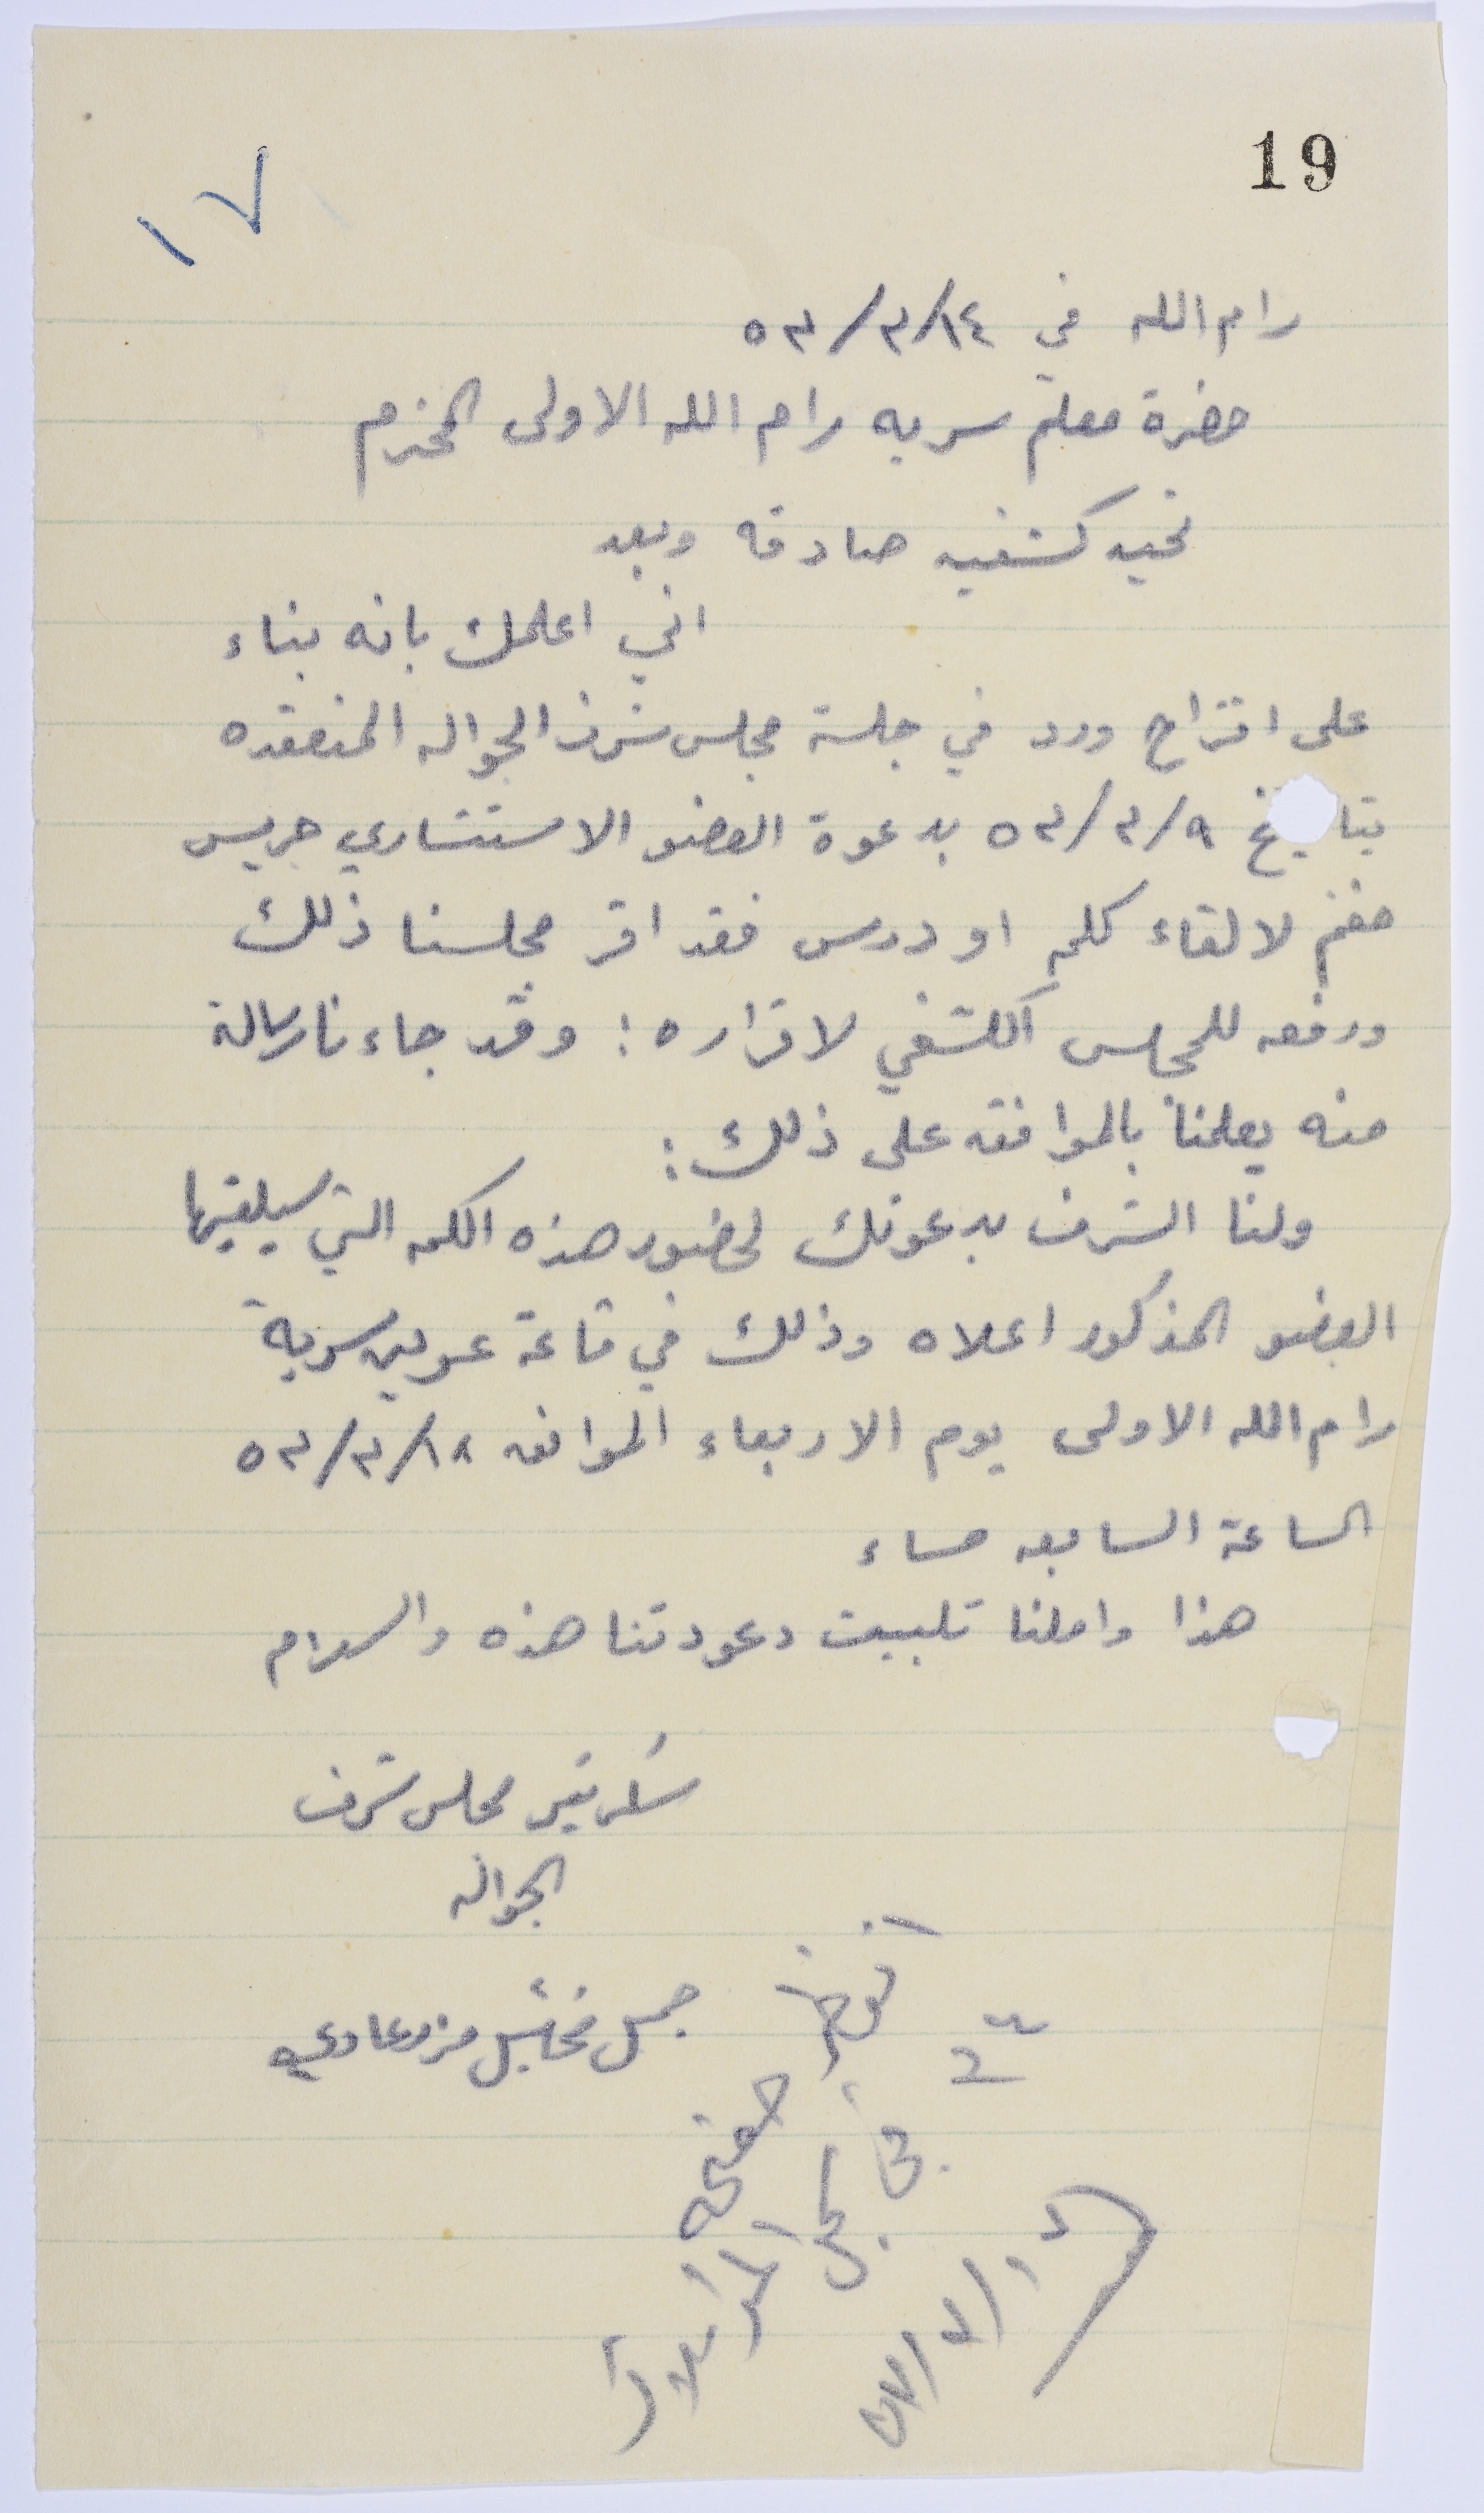 19
١٧
رام الله في ١٤/٣/٥٣
حضرة معلم سريه رام الله الاولى المحترم
تحيه كشفيه صادقه وبعد
اني اعلمك بانه بناء
على اقتراح ورد في جلسة مجلس شرف الجواله المنعقده
بتاريخ ٩/٣/٥٣ بدعوة العضو الاستشاري جريس
لالقاء كلمه او درس فقد اقر مجلسنا ذلك
ورفعه للمجلس الكشفي لاقراره: وقد جاءنا رسالة
منه يعلمنا بالموافقه على ذلك:
ولنا الشرف بدعوتك لحضور هذه الكلمه التي سيلقيها
العضو المذكور اعلاه وذلك في قاعة عرين سرية
رام الله الاولى يوم الاربعاء الموافق ١٨/٣/٥٣
الساعة السابعه مساء
هذا واملنا تلبيت دعودتنا هذه والسلام
سكرتير مجلس شرف
الجواله